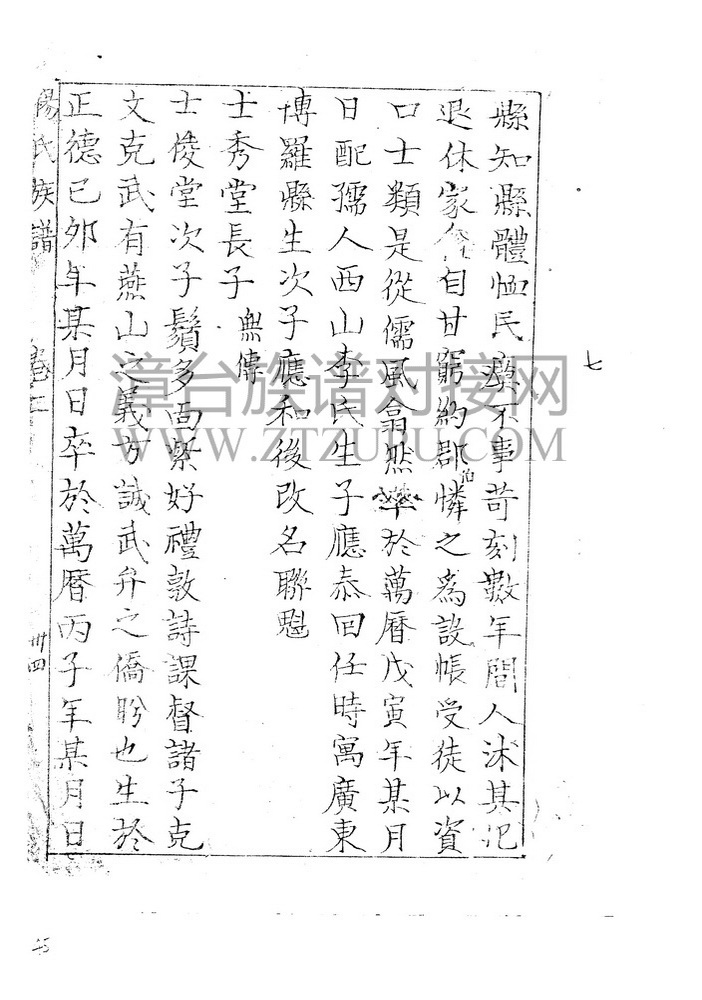 七
縣知縣體恤民瘼不事苛刻數年間人沐其氾
退休家食自甘窮約郡伯憐之為設帳受徒以資
口士類是從儒風翕然卒於萬曆戊寅年某月
日配孺人西山李氏生子應泰回任時寓廣東
博羅縣生次子應和後改名聯魁
士秀堂長子 無傳
士俊堂次子鬚多面紫好禮敦詩課督諸子克
文克武有燕山之義方誠武弁之僑肹也生於
正德己夘年某月日卒於萬曆丙子年某月日
楊氏族譜 卷二 卅四
漳台族谱对接网
WWW.ZTZUPU.COM